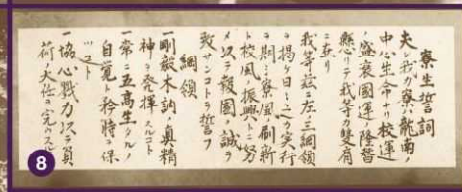 寮生誓詞
夫レ我ガ寮ハ龍南ノ
中心生命ナリ校運
ノ盛衰國運ノ隆替
懸リテ我等ノ雙肩
ニ在リ
我等茲ニ左ノ三綱領
ヲ掲ゲ日ニ之ガ実行
ヲ期シ寮風ノ刷新
ト校風ノ振興トニ努
メ以テ報國ノ誠ヲ
致サンコトヲ誓フ
綱領
一剛毅木訥ノ真精
神ヲ発揮スルコト
一常ニ五高生タルノ
自覚ト矜持ヲ保
ツコト
一協心戮力以テ負
荷ノ大任ヲ完ウスル
8